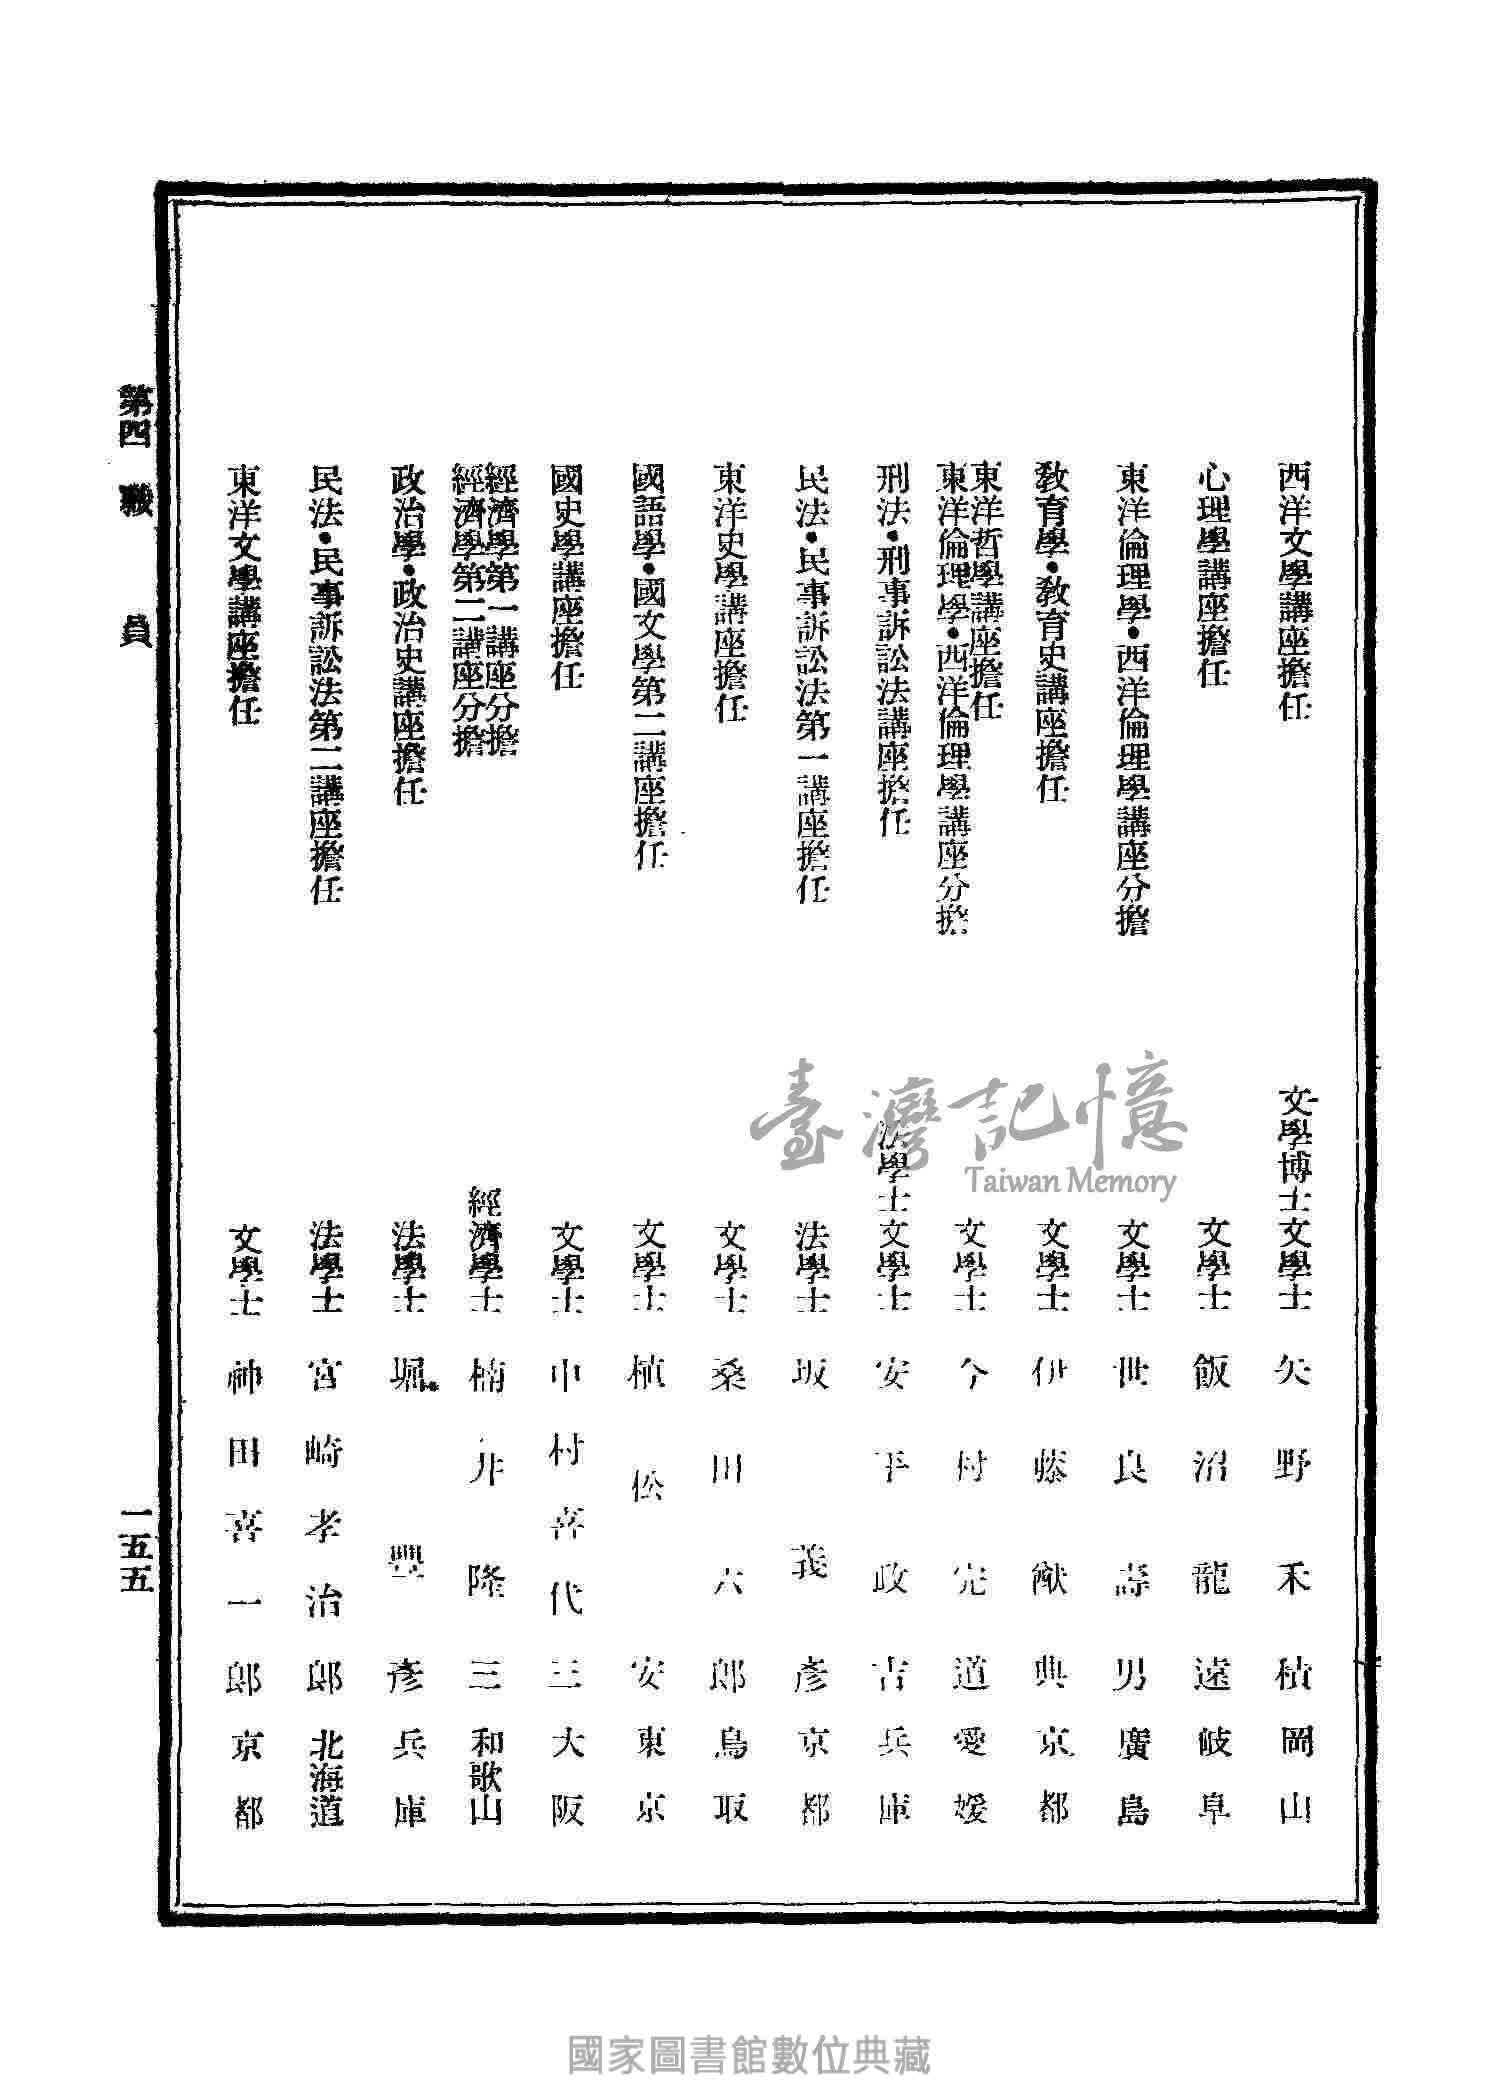 西洋文學講座擔任 文學博士 文學士 矢野禾積 岡山
心理學講座擔任 文學士 飯沼龍遠 岐阜
東洋倫理學・西洋倫理學講座分擔 文學士 世良壽男 廣島
教育學・教育史講座擔任 文學士 伊藤猷典 京都
東洋哲學講座擔任
東洋倫理學・西洋倫理學講座分擔 文學士 今村完道 愛媛
刑法・刑事訴訟法講座擔任 法學士 文學士 安平政吉 兵庫
民法・民事訴訟法第一講座擔任 法學士 坂義彥 京都
東洋史學講座擔任 文學士 桑田六郎 鳥取
國語學・國文學第二講座擔任 文學士 植松安 東京
國史學講座擔任 文學士 中村喜代三 大阪
經濟學第一講座分擔
經濟學第二講座分擔 經濟學士 楠井隆三 和歌山
政治學・政治史講座擔任 法學士 堀豐彥 兵庫
民法・民事訴訟法第二講座擔任 法學士 宮崎孝治郎 北海道
東洋文學講座擔任 文學士 神田喜一郎 京都
第四 職員
一五五
臺灣記憶
Taiwan Memory
國家圖書館數位典藏